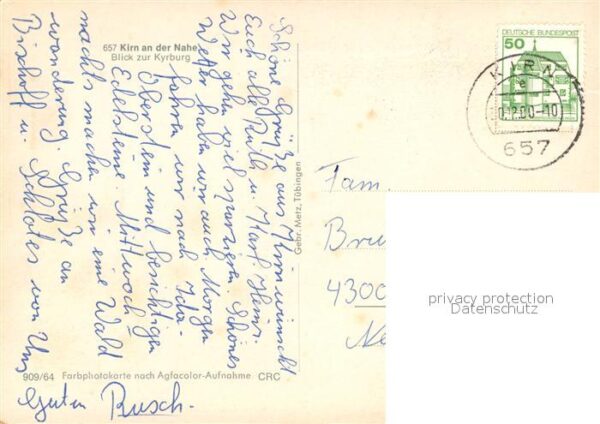 657 Kirn an der Nahe
Blick zur Kyrburg
Schöne Grüße aus Kirn wünscht
Euch alle Ruth u. Karl Heinz.
Wir gehen viel spazieren. Schönes
Wetter haben wir auch. Morgen
fahren wir nach Idar-
Oberstein und besichtigen
Edelsteine. Mittwoch
machts machen wir eine Wald
wanderung. Grüße an
Bischoff u. Schlotes von Uns
Guten Rusch.
909/64 Farbphotokarte nach Agfacolor-Aufnahme CRC
Gebr. Metz, Tübingen
DEUTSCHE BUNDESPOST
50
KIRN
-10
657
Fam.
Bru
4300
privacy protection
Datenschutz